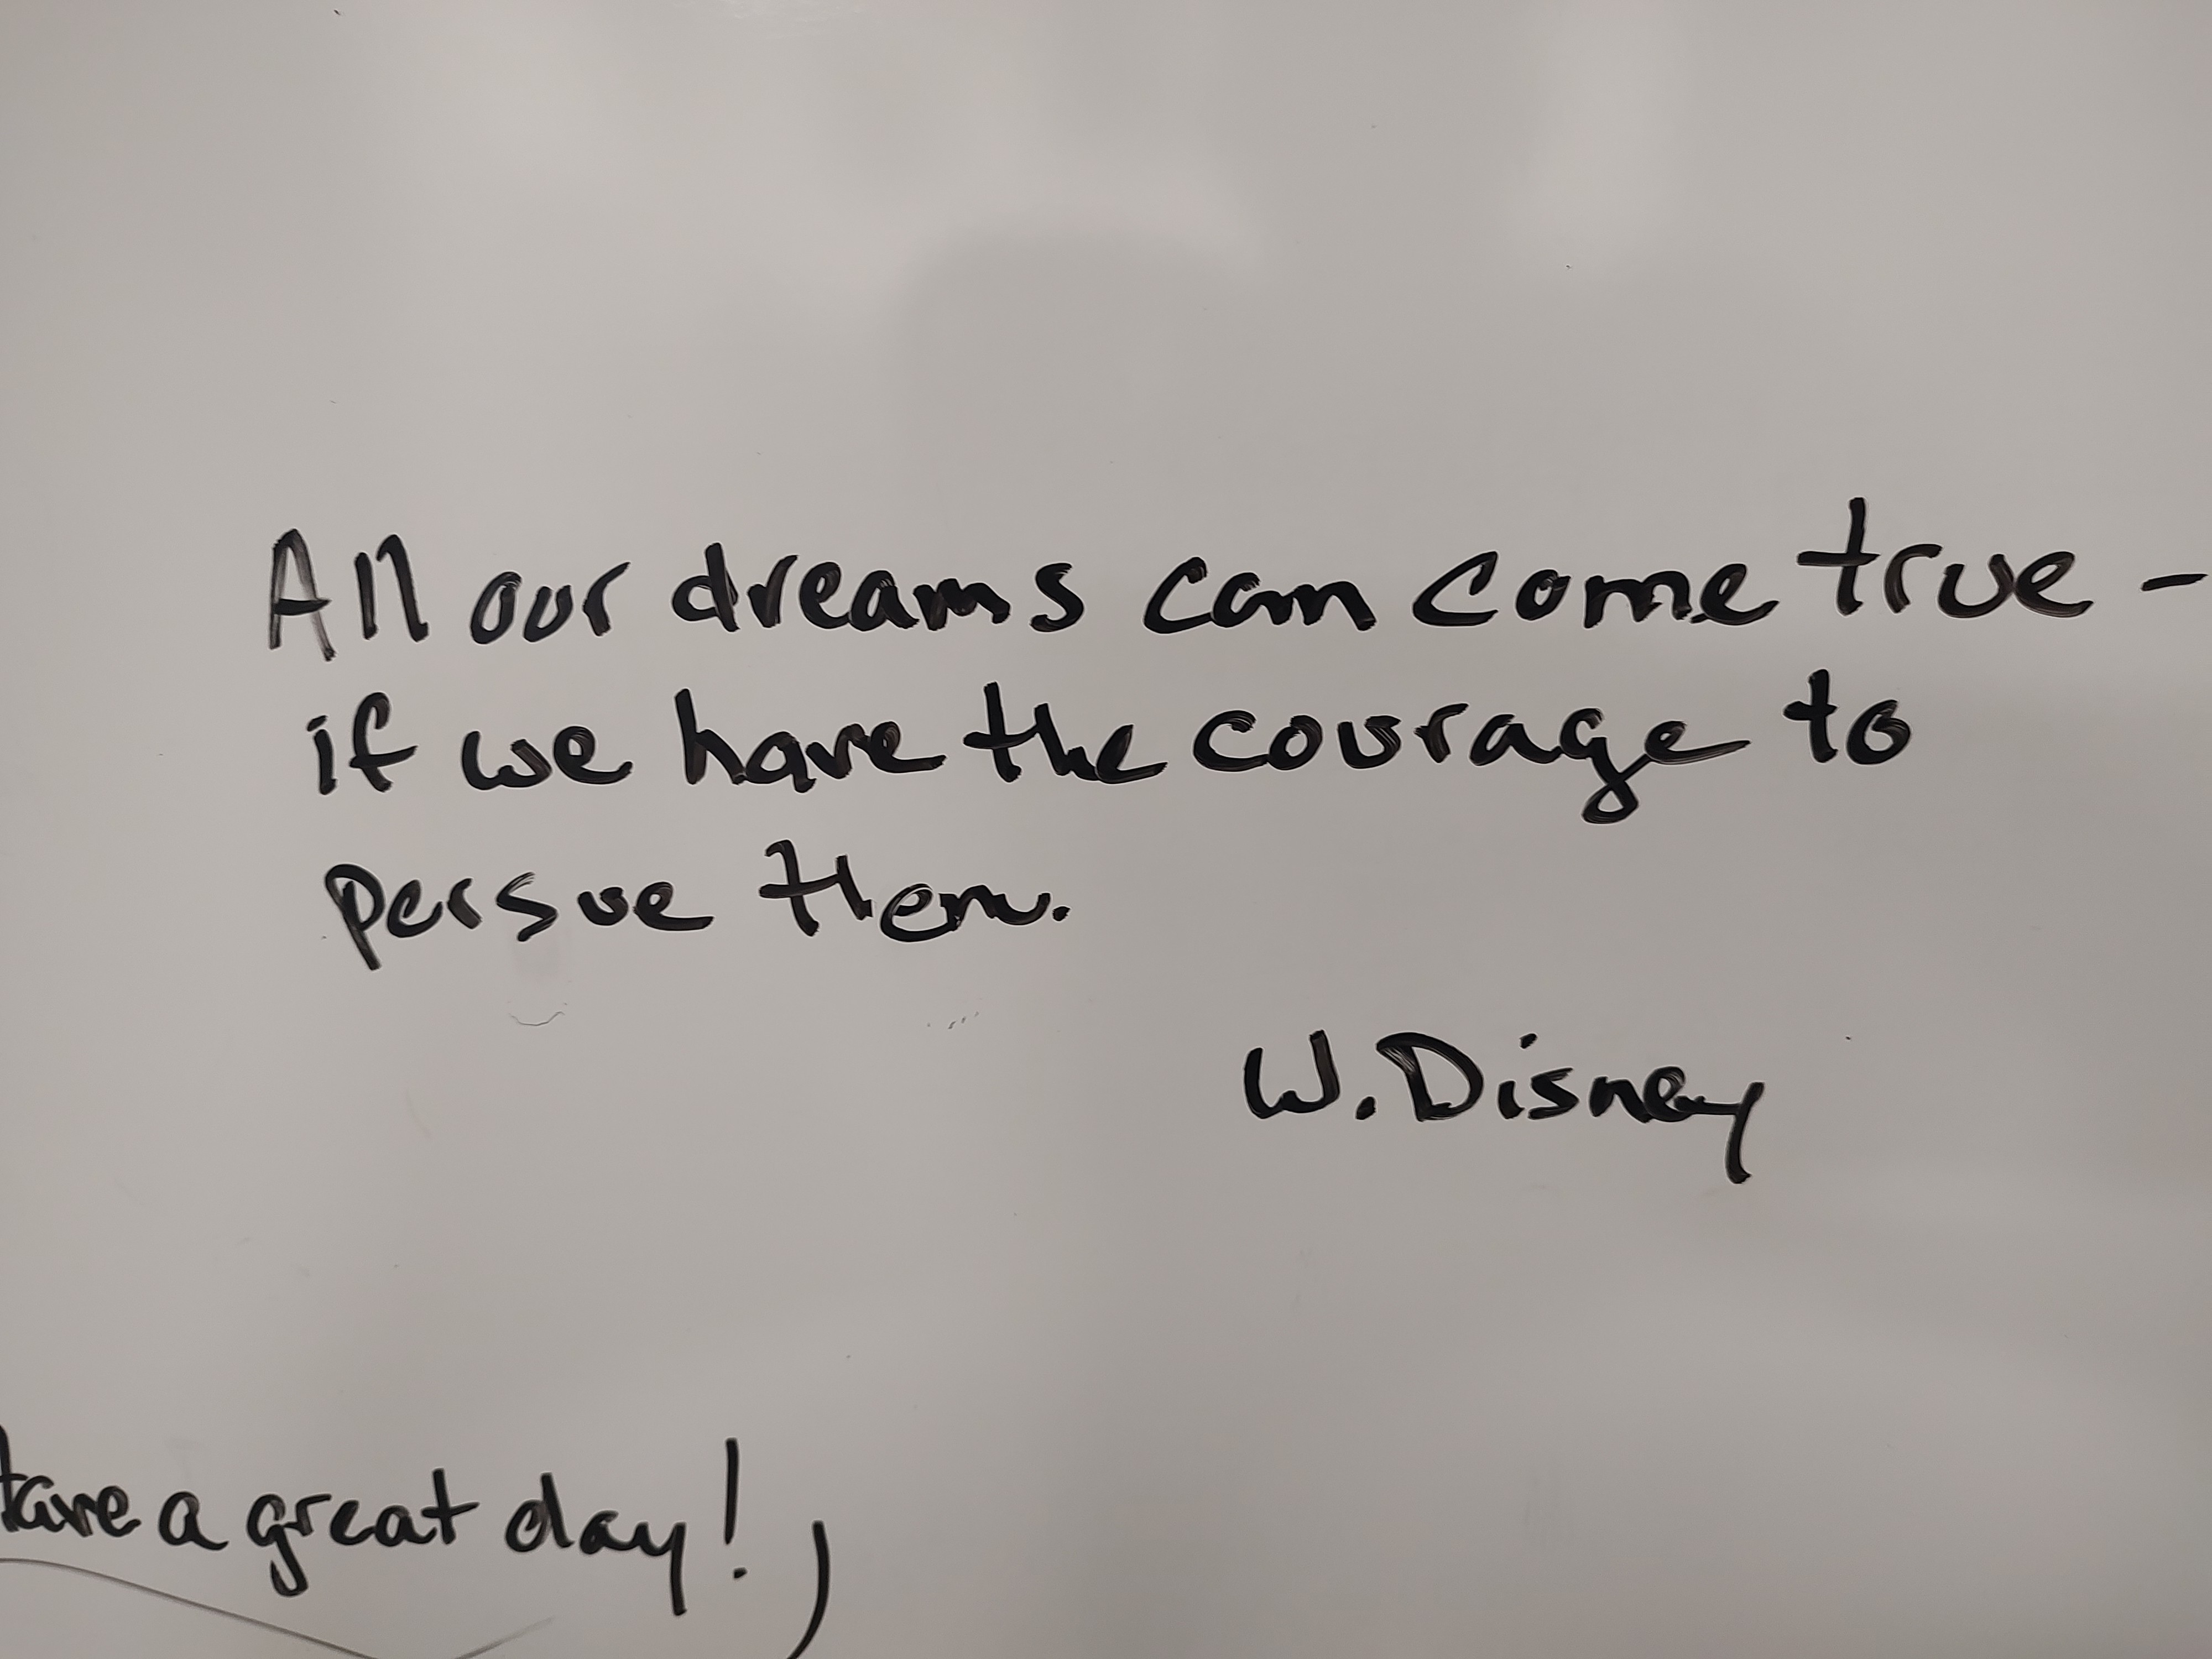 All our dreams can come true -
if we have the courage to
persue them.
W. Disney
Have a great day!